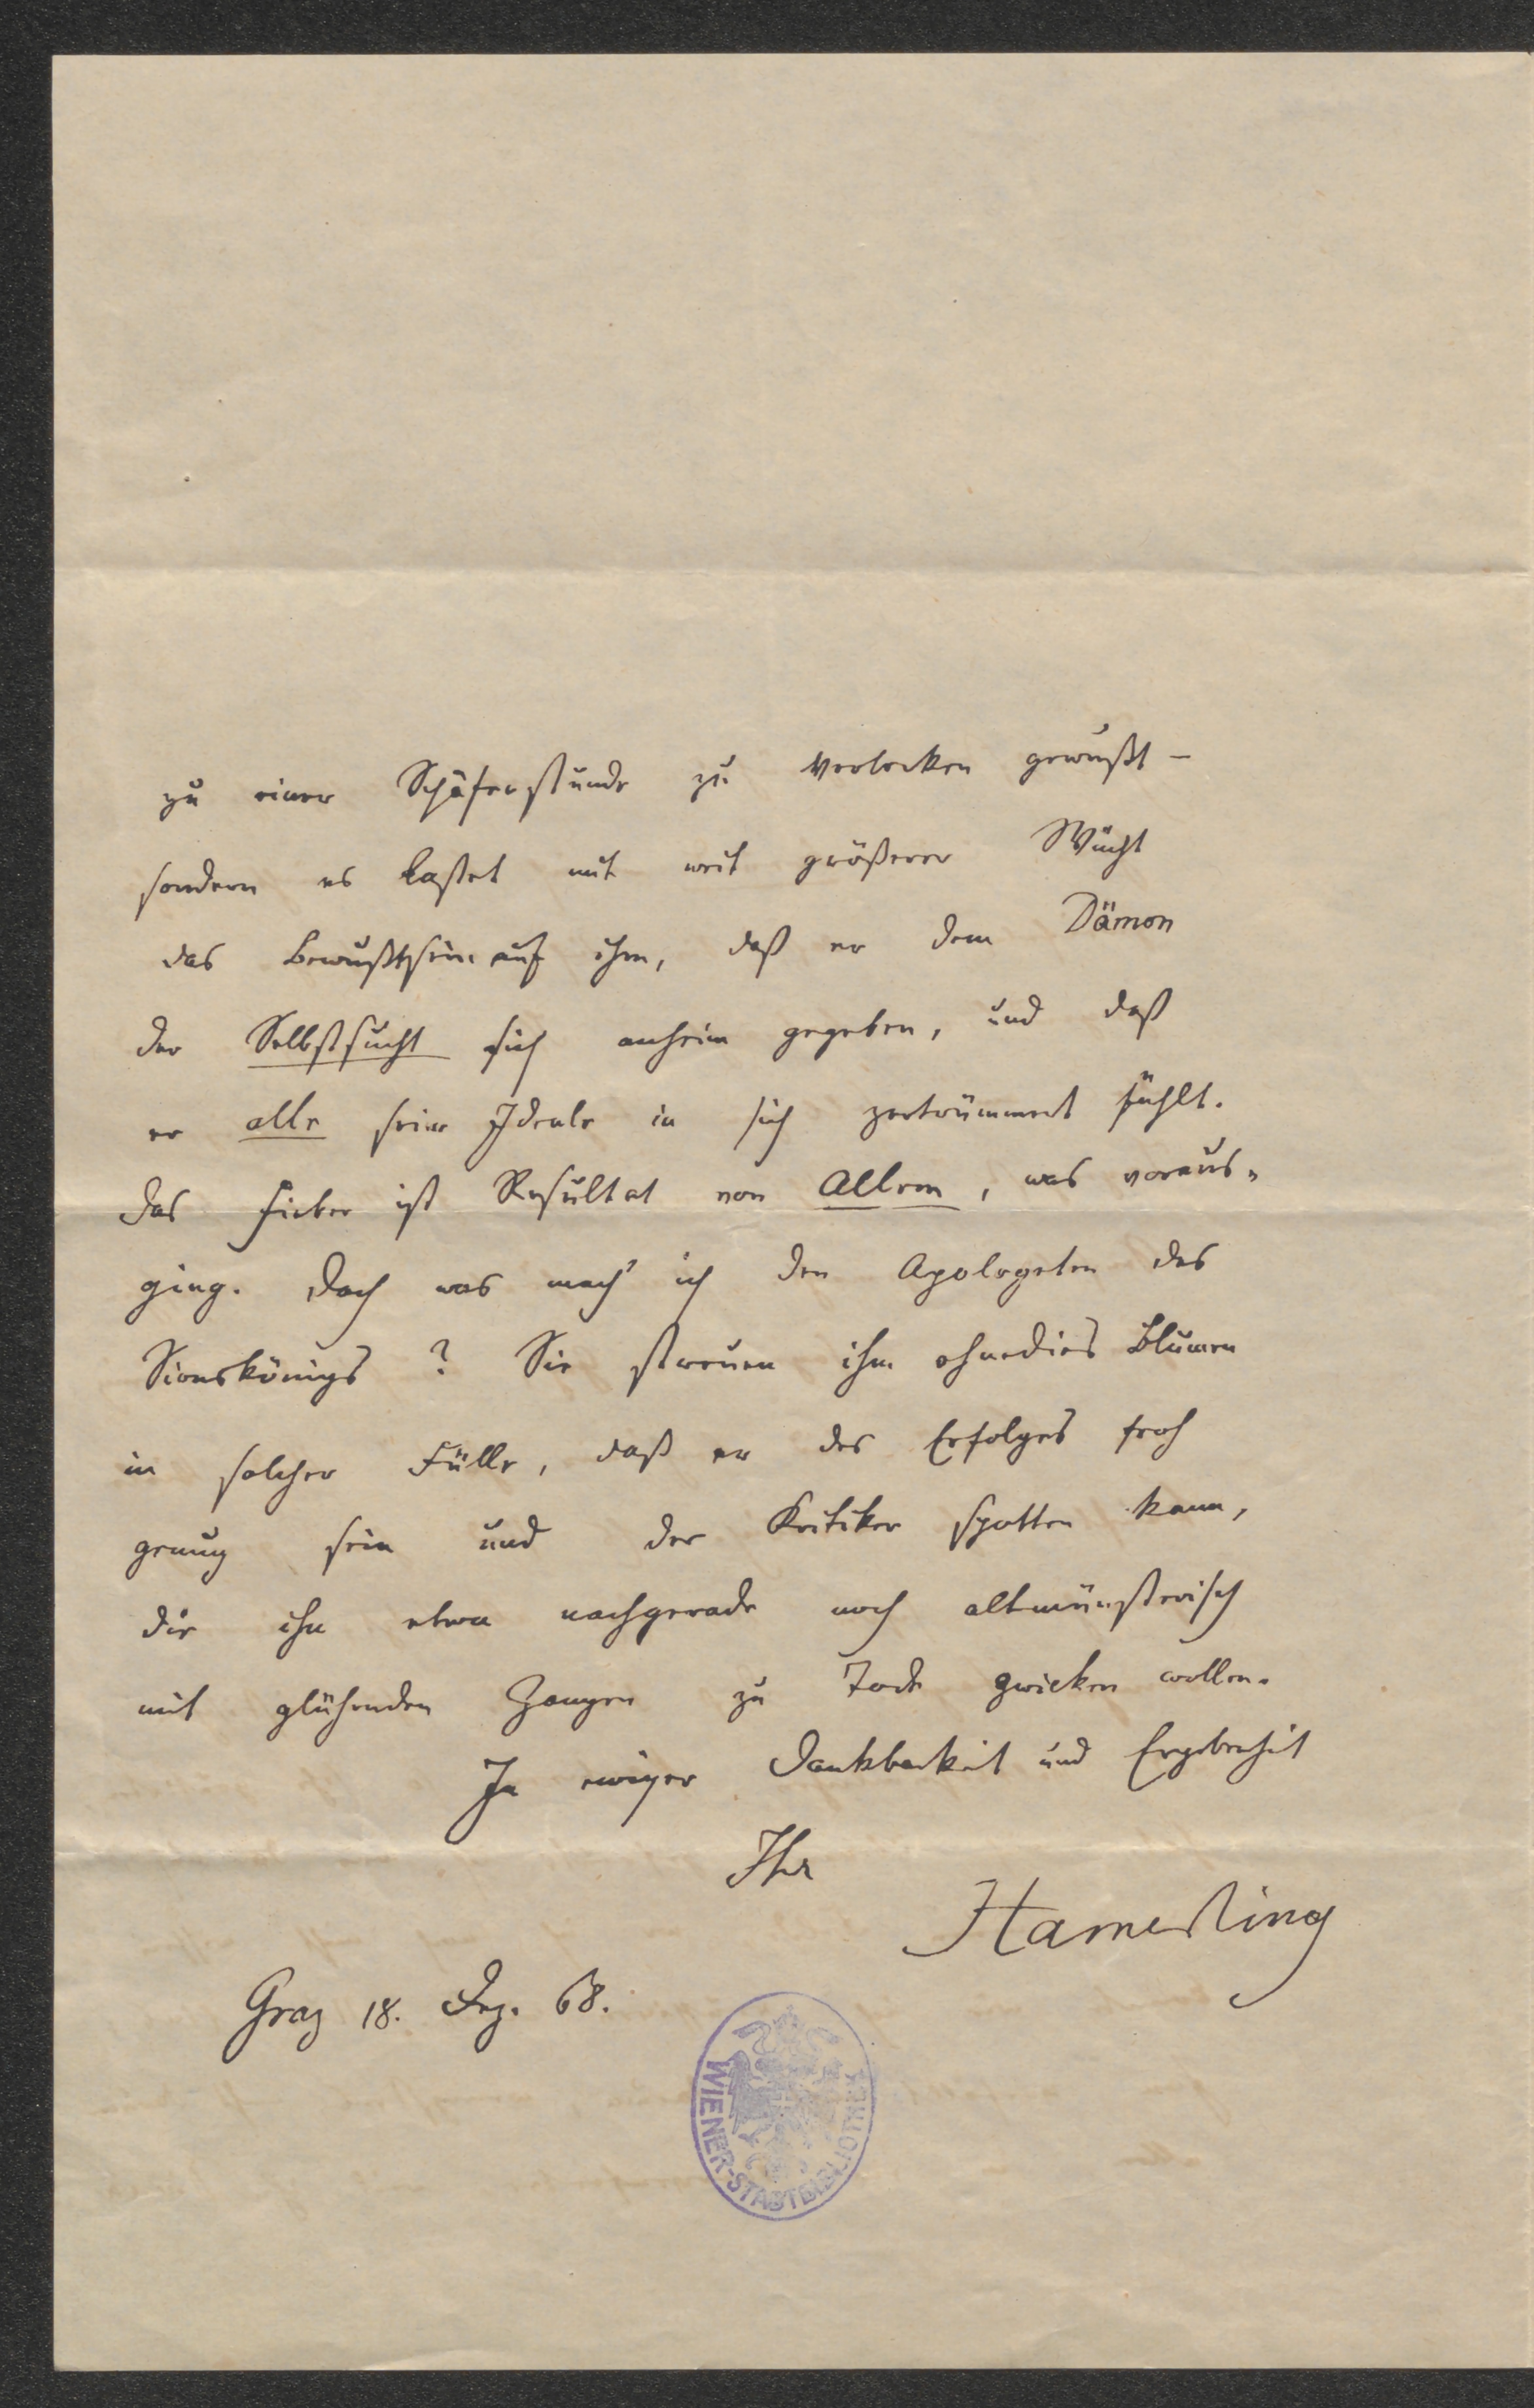 zu einer Schäferstunde zu verlocken gewußt –
sondern es lastet mit weit größerer Wucht
das Bewußtsein auf ihm, daß er dem Dämon
der Selbstsucht sich anheim gegeben, und daß
er alle seine Ideale in sich zertrümmert fühlt.
Das Fieber ist Resultat von Allem, was voraus-
ging. Doch was mach' ich den Apologeten des
Sionskönigs? Sie streuen ihm ohnedies Blumen
in solcher Fülle, daß er des Erfolges froh
genug sein und der Kritiker spotten kann,
die ihn etwa nachgerade noch altmünsterisch
mit glühenden Zangen zu Tode zwicken wollen.
In ewiger Dankbarkeit und Ergebenheit
Ihr
Hamerling
Graz 18. Dez. 68.
WIENER-STADTBIBLIOTHEK